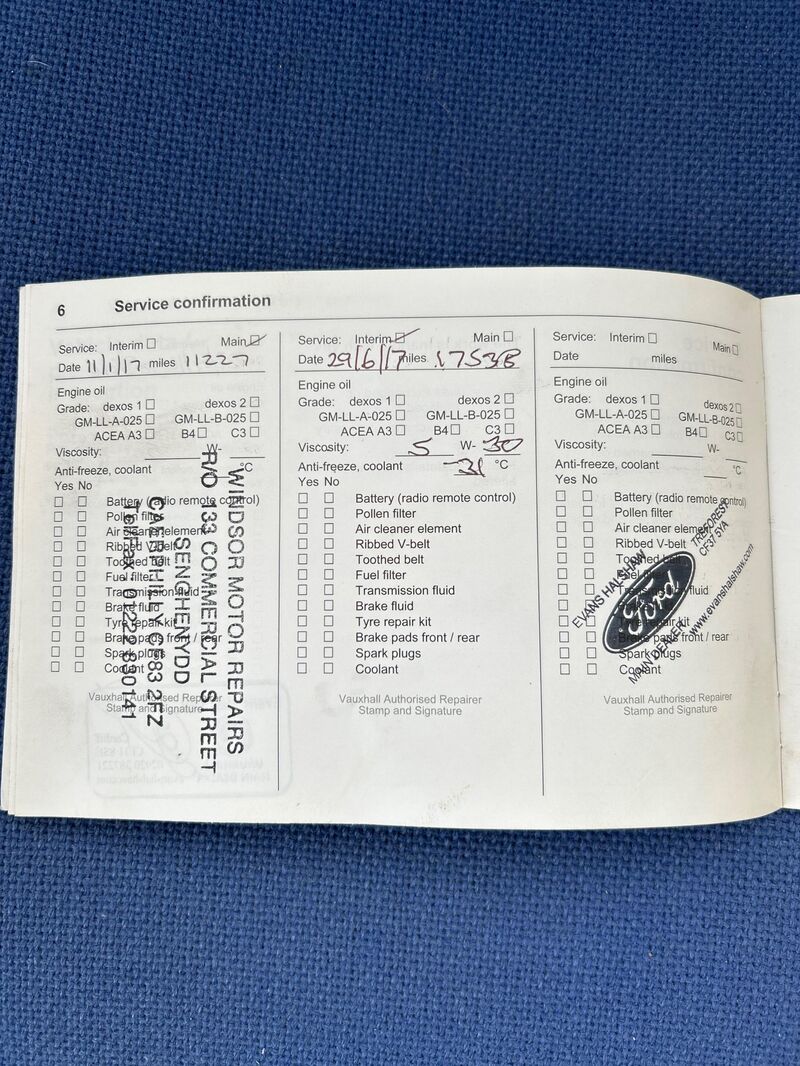 6 Service confirmation
Service: Interim Main
Date 11/1/17 miles 11227
Engine oil
Grade: dexos 1 dexos 2
GM-LL-A-025 GM-LL-B-025
ACEA A3 B4 C3
Viscosity: W-
Anti-freeze, coolant °C
Yes No
Battery (radio remote control)
Pollen filter
Air cleaner element
Ribbed V-belt
Toothed belt
Fuel filter
Transmission fluid
Brake fluid
Tyre repair kit
Brake pads front / rear
Spark plugs
Coolant
Vauxhall Authorised Repairer
Stamp and Signature
WINDSOR MOTOR REPAIRS
R/O 133 COMMERCIAL STREET
SENGHENYDD
CAERPHILLY CF83 2FZ
Tel/Fax 02922 830141
Service: Interim Main
Date 29/6/17 miles 17538
Engine oil
Grade: dexos 1 dexos 2
GM-LL-A-025 GM-LL-B-025
ACEA A3 B4 C3
Viscosity: 5 W- 30
Anti-freeze, coolant -31 °C
Yes No
Battery (radio remote control)
Pollen filter
Air cleaner element
Ribbed V-belt
Toothed belt
Fuel filter
Transmission fluid
Brake fluid
Tyre repair kit
Brake pads front / rear
Spark plugs
Coolant
Vauxhall Authorised Repairer
Stamp and Signature
Service: Interim Main
Date miles
Engine oil
Grade: dexos 1 dexos 2
GM-LL-A-025 GM-LL-B-025
ACEA A3 B4 C3
Viscosity: W-
Anti-freeze, coolant °C
Yes No
Battery (radio remote control)
Pollen filter
Air cleaner element
Ribbed V-belt
Toothed belt
Fuel filter
Transmission fluid
Brake fluid
Tyre repair kit
Brake pads front / rear
Spark plugs
Coolant
Vauxhall Authorised Repairer
Stamp and Signature
EVANS HALSHAW
TREFOREST
CF37 5YA
Ford
MAIN DEALER
www.evanshalshaw.com